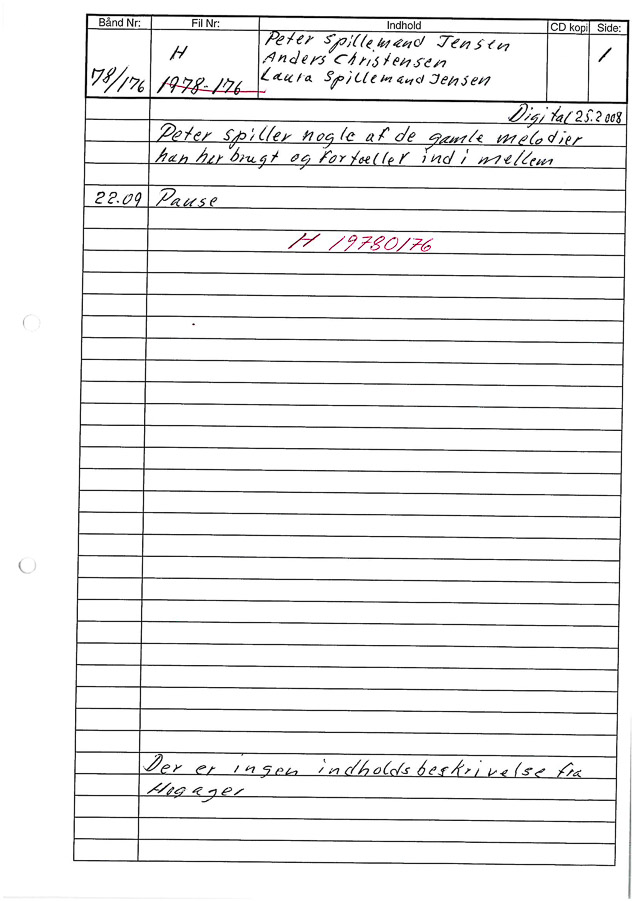 Bånd Nr: Fil Nr: Indhold CD kopi Side:
Peter Spillemand Jensen
H Anders Christensen 1
78/176 1978-176 Laura Spillemand Jensen
Digital 25.2008
Peter spiller nogle af de gamle melodier
han her brugt og fortæller ind i mellem
22.09 Pause
H 19780176
Der er ingen indholdsbeskrivelse fra
Høgager